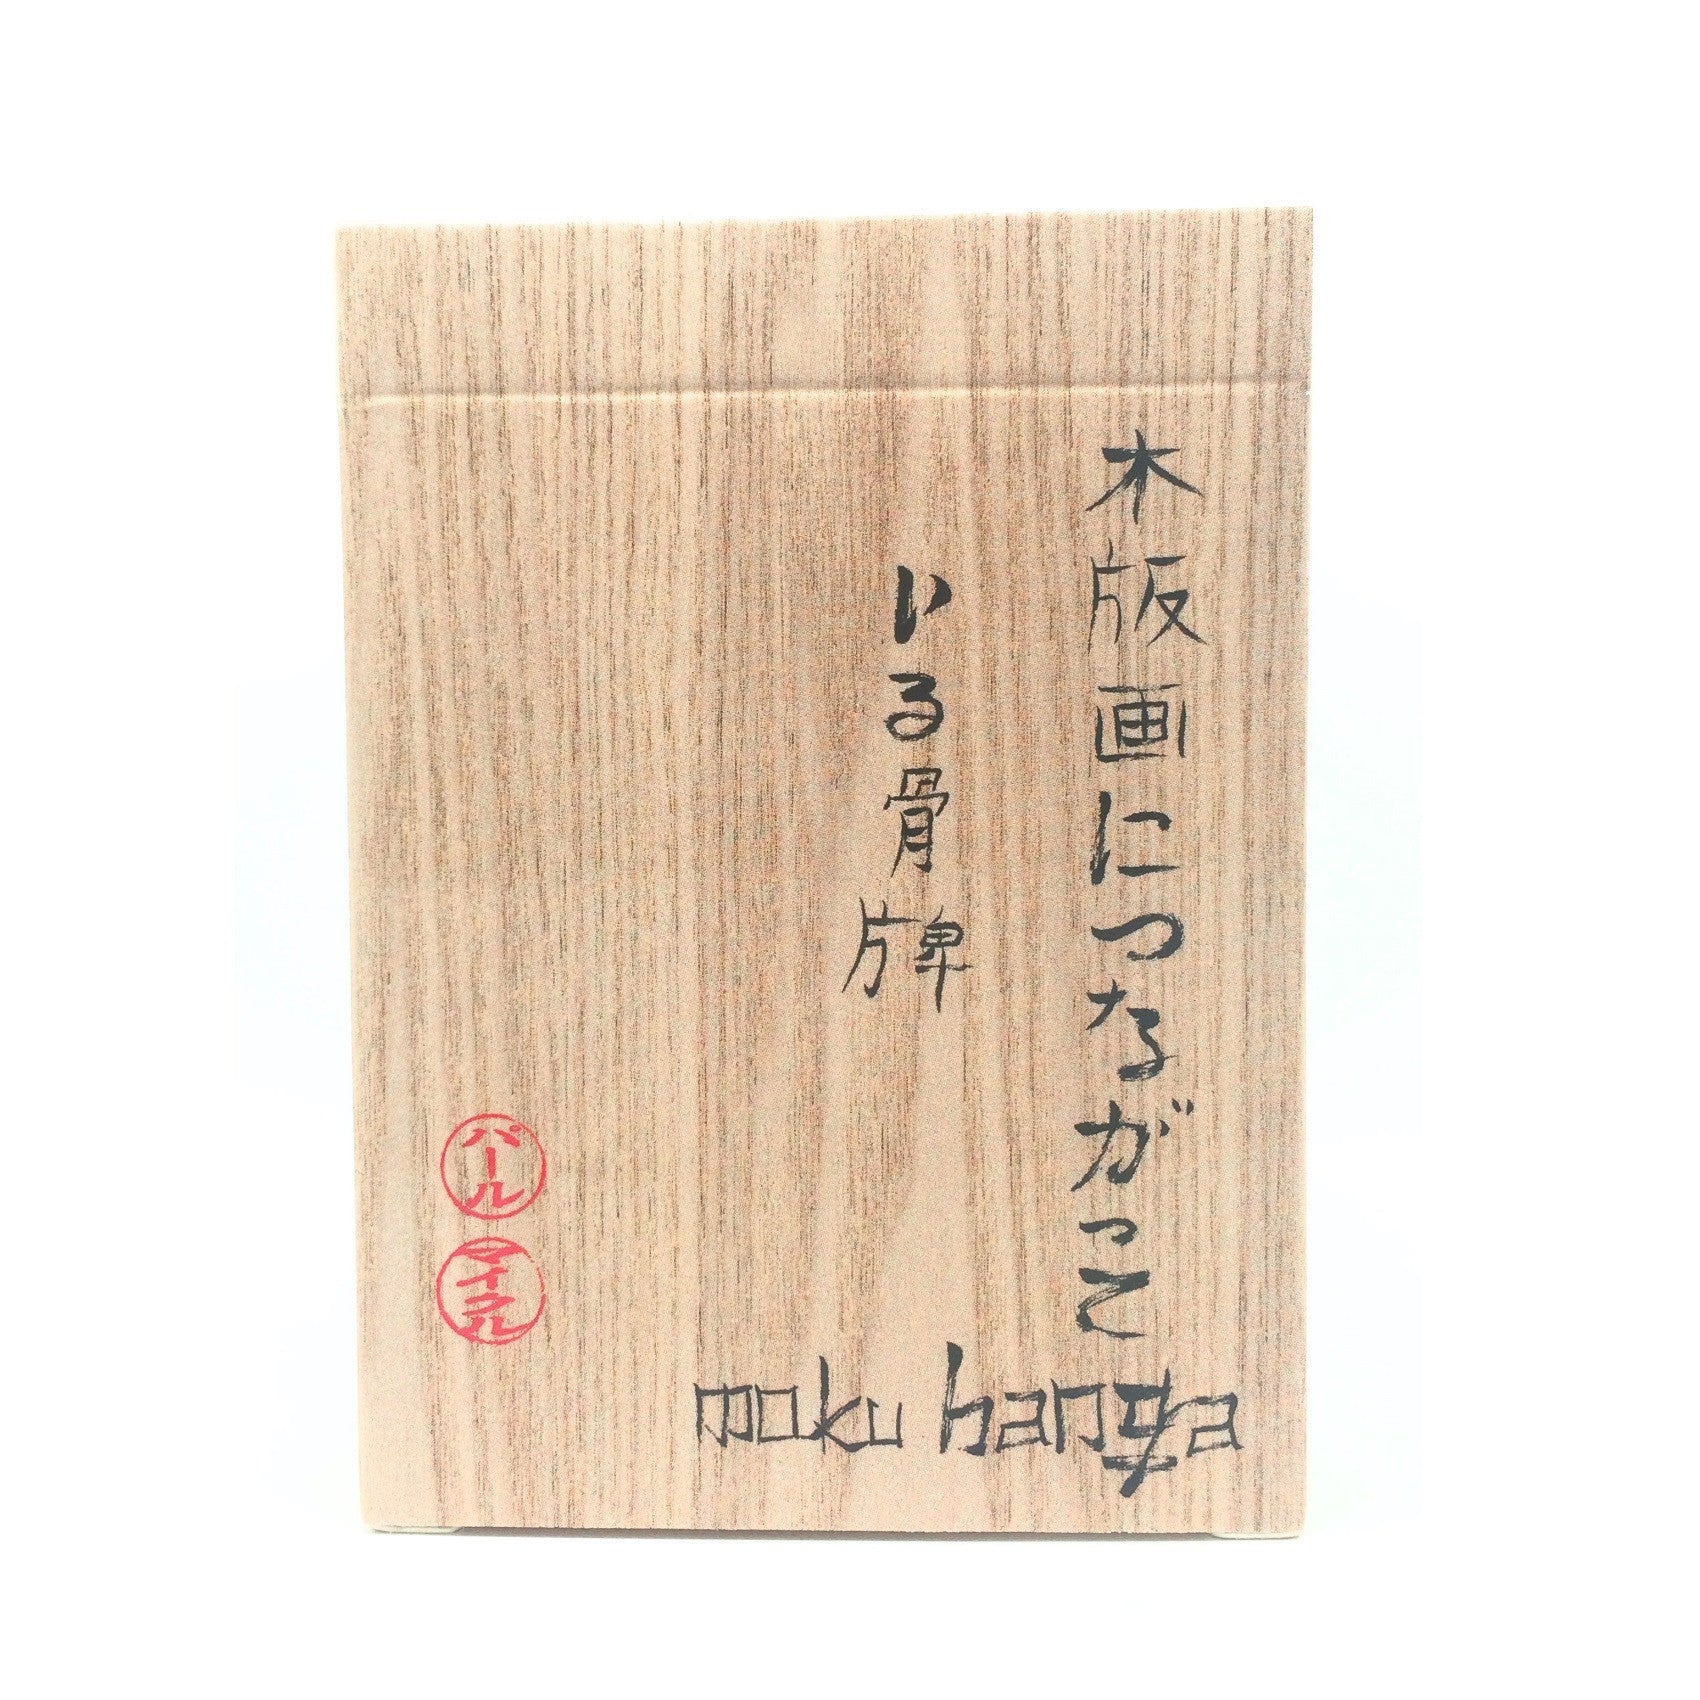 木版画につながって
いる骨牌
moku hanga
パール
マイクル